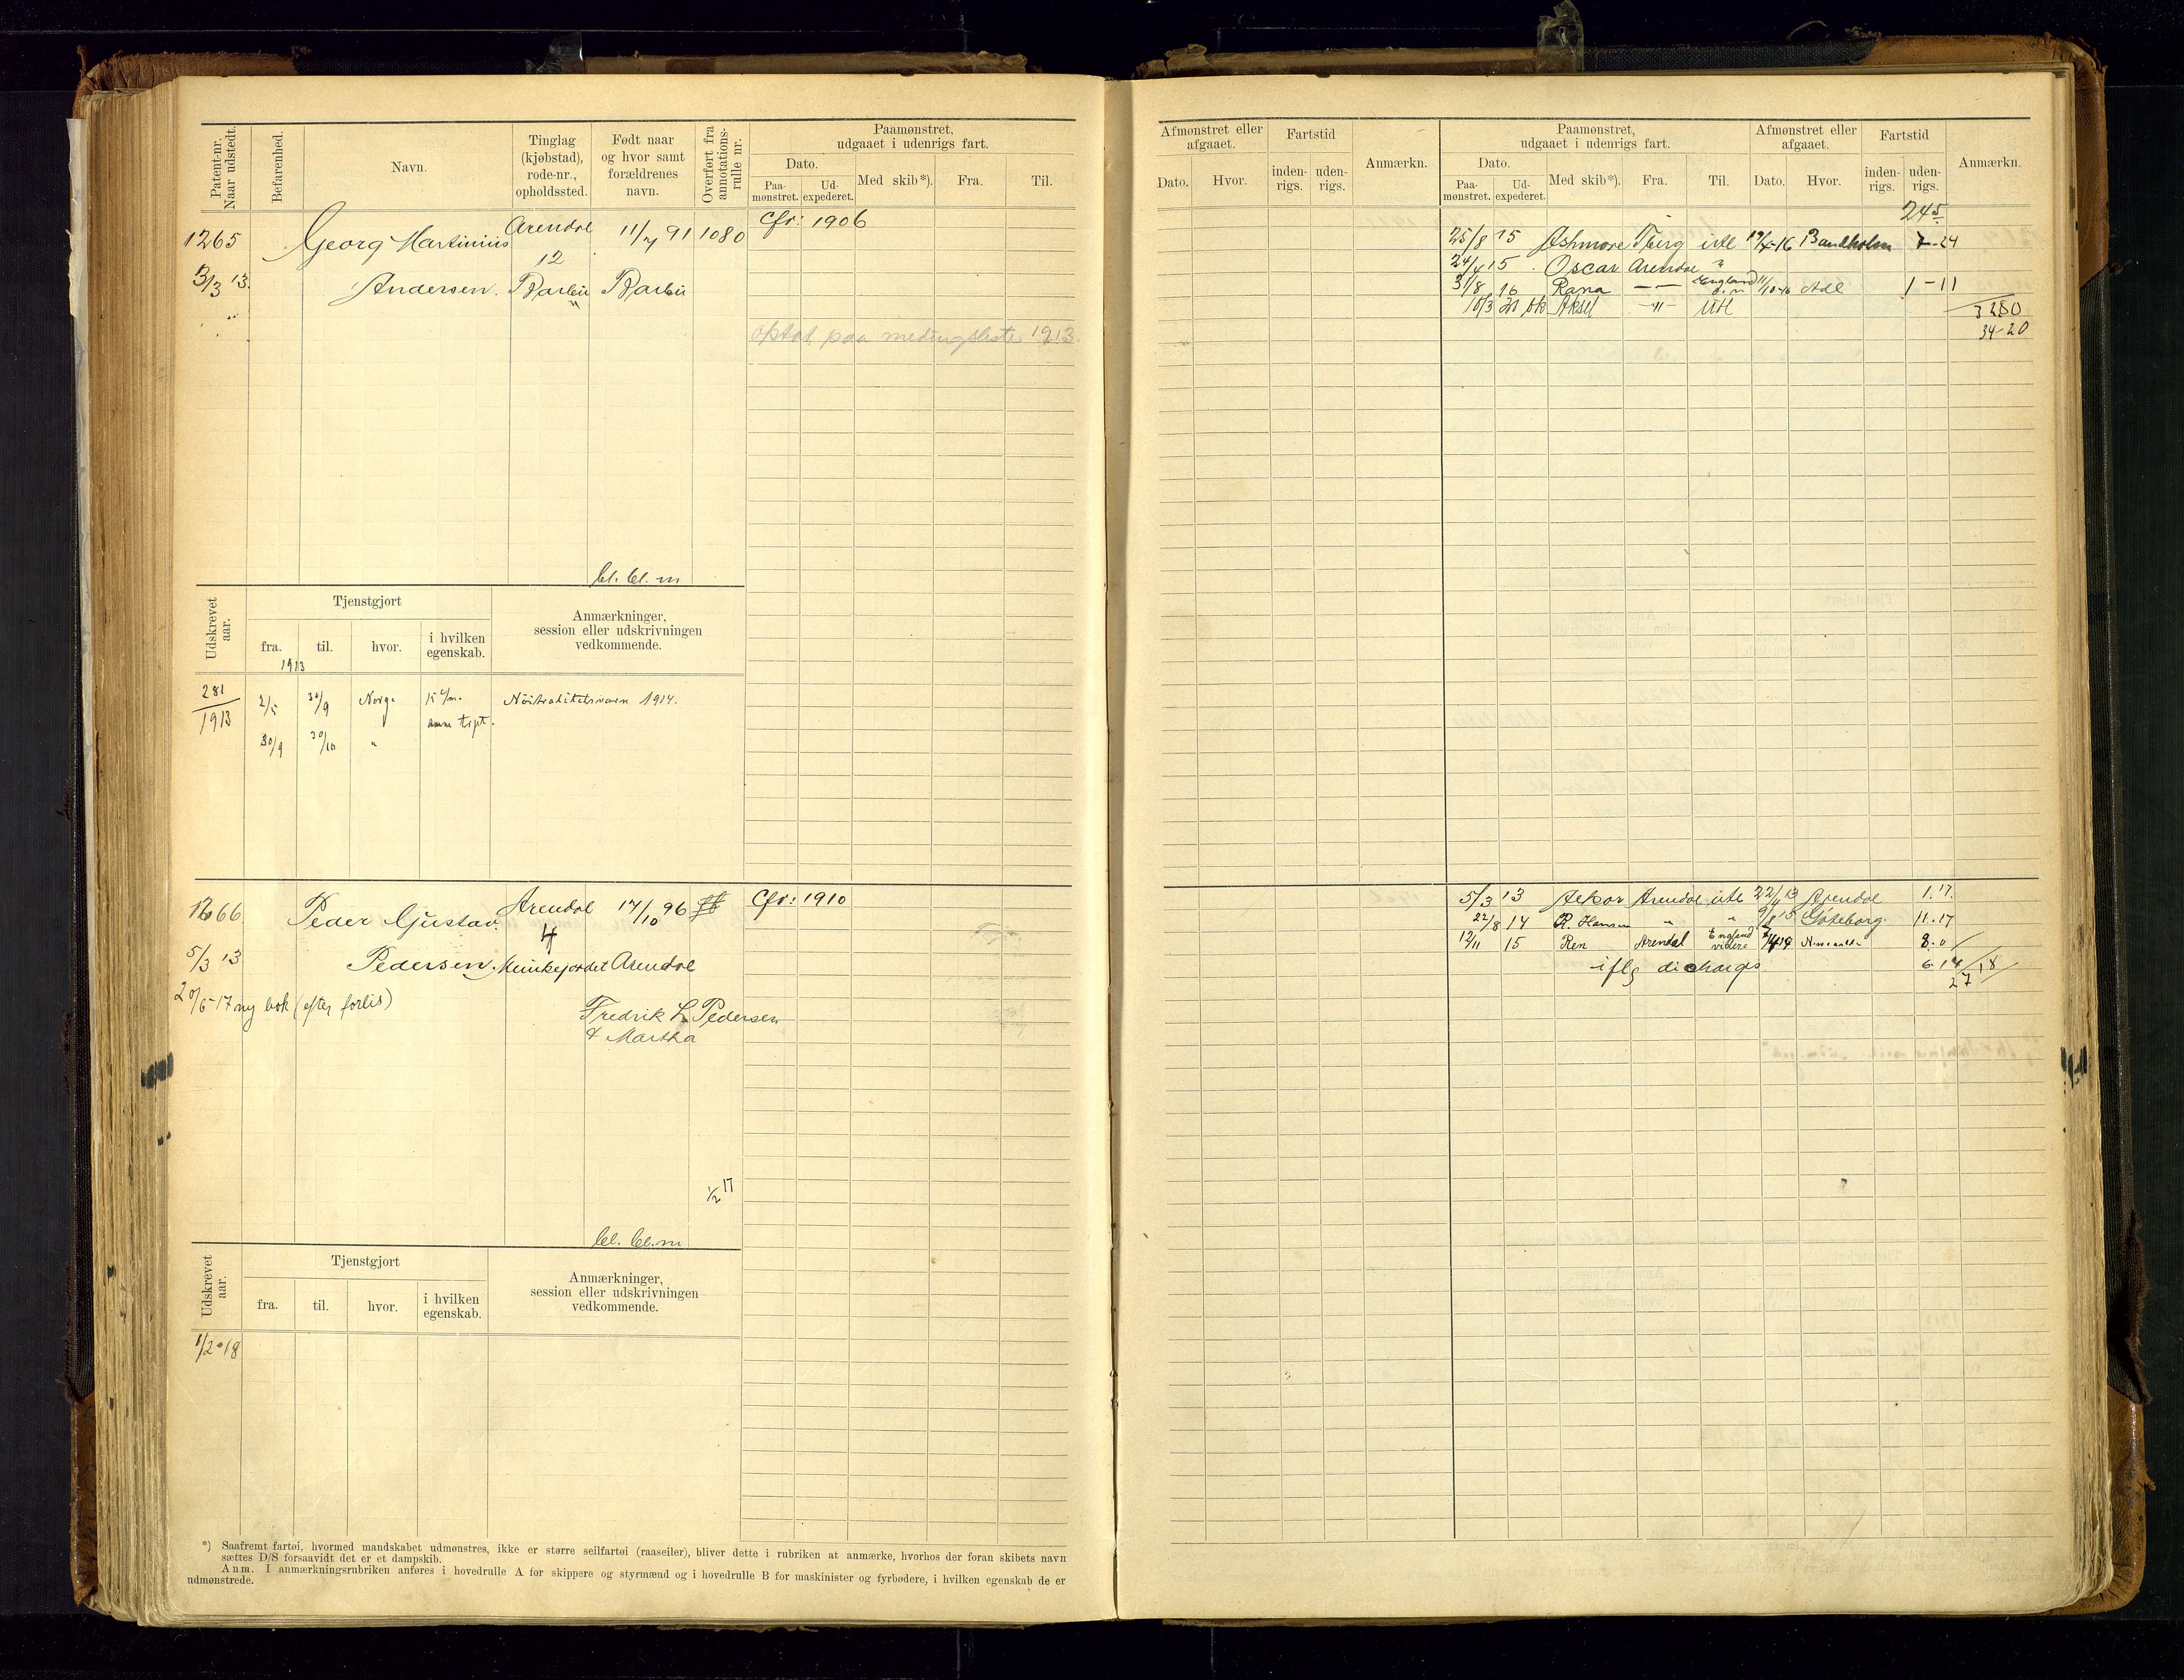 Patent-nr. Naar udstedt.
Befarenhed.
Navn.
Tinglag (kjøbstad), rode-nr., opholdssted.
Født naar og hvor samt forældrenes navn.
Overført fra annotations-rulle nr.
Paamønstret, udgaaet i udenrigs fart.
Dato.
Paa-mønstret.
Ud-expederet.
Med skib*).
Fra.
Til.
1265
Georg Martinius
Arendal
11/7 91
1080
Cfr: 1906
12
3/3 13.
Andersen.
Barbu
Barbu
optat paa medingsliste 1913.
bl. bl. m
Udskrevet aar.
Tjenstgjort
fra.
til.
hvor.
i hvilken egenskab.
Anmærkninger, session eller udskrivningen vedkommende.
1913
281
1913
2/5
30/9
Norge
Nöitralitetsvern 1914.
30/9
30/10
"
1266
Peder Gustav
Arendal
17/10 96
Cfr: 1910
4
5/3 13
Pedersen.
Munkejordet
Arendal
20/6-17 ny bok (efter forlis)
Fredrik L Pedersen
& Martha
1/2 17
bl. bl. m
Udskrevet aar.
Tjenstgjort
fra.
til.
hvor.
i hvilken egenskab.
Anmærkninger, session eller udskrivningen vedkommende.
1/2-18
*) Saafremt fartøi, hvormed mandskabet udmønstres, ikke er større seilfartøi (raaseiler), bliver dette i rubriken at anmærke, hvorhos der foran skibets navn
sættes D/S forsaavidt det er et dampskib.
Anm. I anmærkningsrubriken anføres i hovedrulle A for skippere og styrmænd og i hovedrulle B for maskinister og fyrbødere, i hvilken egenskab de er
udmønstrede.
Afmønstret eller afgaaet.
Dato.
Hvor.
Fartstid
inden-rigs.
uden-rigs.
Anmærkn.
Paamønstret, udgaaet i udenrigs fart.
Dato.
Paa-mønstret.
Ud-expederet.
Med skib*).
Fra.
Til.
Afmønstret eller afgaaet.
Dato.
Hvor.
Fartstid
inden-rigs.
uden-rigs.
Anmærkn.
245
25/8 15 Ashmore Tberg utl 19/4-16 Bandholm 7-24
24/4 15 Oscar Arendal "
31/8 16 Rana England 11/10-16 Adl 1-11
10/3 Aksel -"- Utl
3280
34-20
5/3 13 Arendal utl 22/4 13 Arendal 1.17.
22/8 14 R. Hansen " " 9/8 15 Göteborg. 11.17
12/11 15 Ren Arendal England videre 8.0
iflg discharges 6 14
27 18